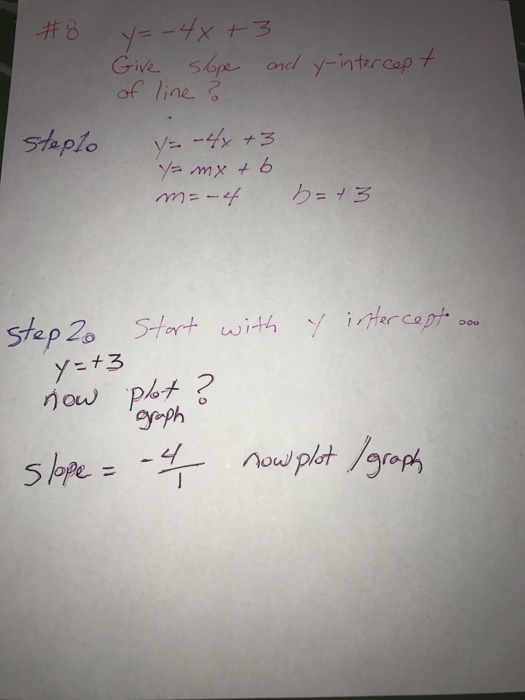 #8 y = -4x + 3
Give slope and y-intercept
of line ?
step1. y = -4x + 3
y = mx + b
m = -4 b = +3
step 2. Start with y intercept ...
y = +3
now plot ?
graph
slope = -4/1 now plot / graph